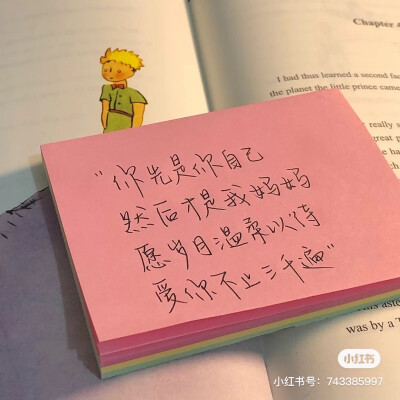 Chapter 4
I had thus learned a second fac
the planet the little prince came
really s
great p
"你先是你自己
然后才是我妈妈
愿岁月温柔以待
爱你不止三千遍"
This aste
was by a T
小红书
小红书号：743385997